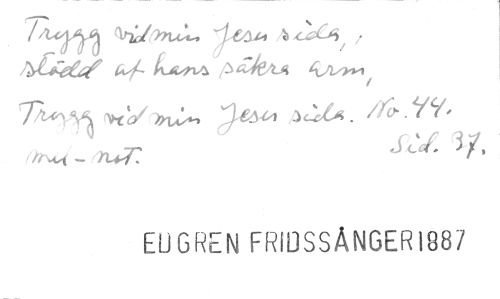 Trygg vid min Jesu sida,
stödd af hans säkra arm,
Trygg vid min Jesu sida. No. 44.
mel-not. Sid. 37.
EUGREN FRIDSSÅNGER 1887